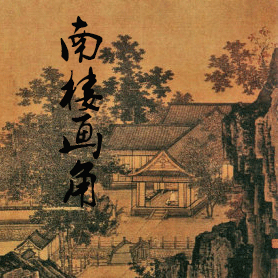 南楼画角